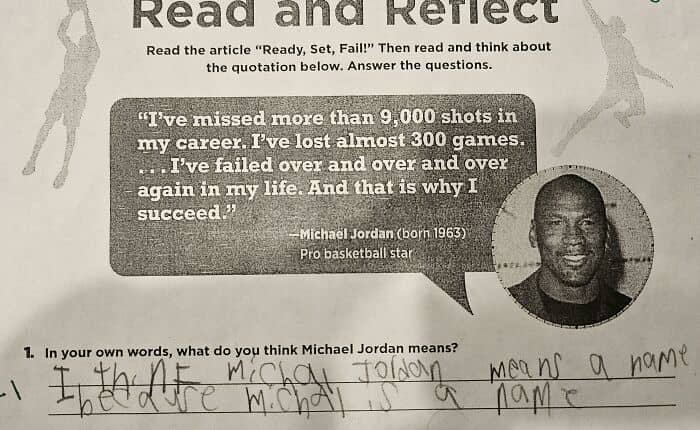 Read and Reflect
Read the article “Ready, Set, Fail!” Then read and think about
the quotation below. Answer the questions.
“I’ve missed more than 9,000 shots in
my career. I’ve lost almost 300 games.
. . . I’ve failed over and over and over
again in my life. And that is why I
succeed.”
—Michael Jordan (born 1963)
Pro basketball star
1. In your own words, what do you think Michael Jordan means?
I think Michal Joldan means a name
-1 because Michal is a name